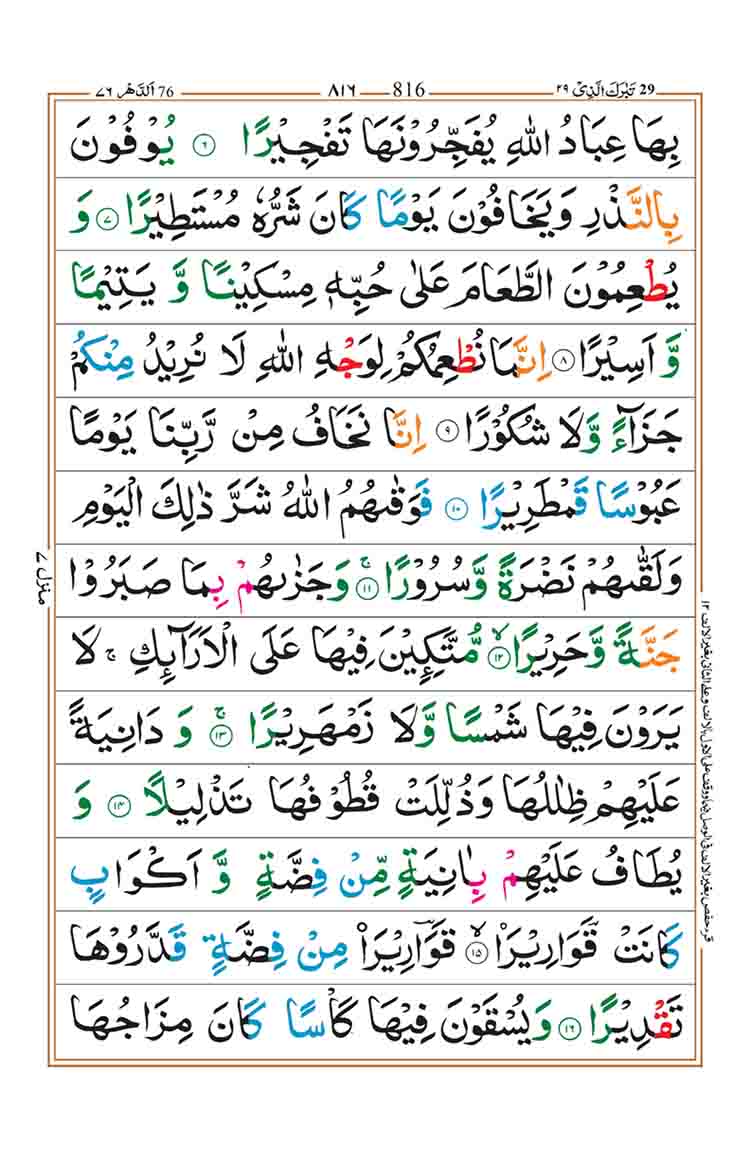 29 تَبٰرَكَ الَّذِیْ ٢٩
816 ٨١٦
76 اَلدَّهْر ٧٦
بِهَا عِبَادُ اللّٰهِ یُفَجِّرُوْنَهَا تَفْجِیْرًا ۝۶ یُوْفُوْنَ
بِالنَّذْرِ وَیَخَافُوْنَ یَوْمًا كَانَ شَرُّهٗ مُسْتَطِیْرًا ۝۷ وَ
یُطْعِمُوْنَ الطَّعَامَ عَلٰی حُبِّهٖ مِسْكِیْنًا وَّ یَتِیْمًا
وَّ اَسِیْرًا ۝۸ اِنَّمَا نُطْعِمُكُمْ لِوَجْهِ اللّٰهِ لَا نُرِیْدُ مِنْكُمْ
جَزَآءً وَّلَا شُكُوْرًا ۝۹ اِنَّا نَخَافُ مِنْ رَّبِّنَا یَوْمًا
عَبُوْسًا قَمْطَرِیْرًا ۝۱۰ فَوَقٰىهُمُ اللّٰهُ شَرَّ ذٰلِكَ الْیَوْمِ
وَلَقّٰىهُمْ نَضْرَةً وَّسُرُوْرًا ۝۱۱ۚ وَجَزٰىهُمْ بِمَا صَبَرُوْا
جَنَّةً وَّحَرِیْرًا ۝۱۲ۙ مُّتَّكِـِٕیْنَ فِیْهَا عَلَی الْاَرَآىِٕكِ ۚ لَا
یَرَوْنَ فِیْهَا شَمْسًا وَّلَا زَمْهَرِیْرًا ۝۱۳ۚ وَ دَانِیَةً
عَلَیْهِمْ ظِلٰلُهَا وَذُلِّلَتْ قُطُوْفُهَا تَذْلِیْلًا ۝۱۴ وَ
یُطَافُ عَلَیْهِمْ بِاٰنِیَةٍ مِّنْ فِضَّةٍ وَّ اَكْوَابٍ
كَانَتْ قَوَارِیْرَا۠ ۝۱۵ۙ قَوَآرِیْرَا۠ مِنْ فِضَّةٍ قَدَّرُوْهَا
تَقْدِیْرًا ۝۱۶ وَیُسْقَوْنَ فِیْهَا كَاْسًا كَانَ مِزَاجُهَا
منزل ٧